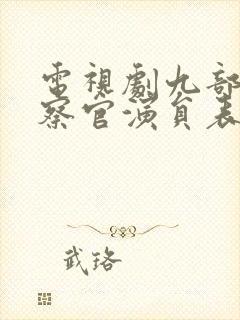 電視劇九部
察官演員表
武珞